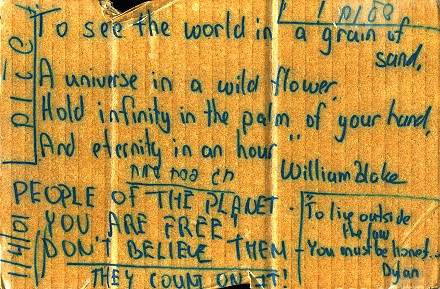 To see the world in a grain of
sand,
A universe in a wild flower
Hold infinity in the palm of your hand,
And eternity in an hour"
William Blake
PEOPLE OF THE PLANET -
YOU ARE FREE!
DON'T BELIEVE THEM -
THEY COUNT ON IT!
1/4/01
To live outside
the law
- You must be honest..
Dylan